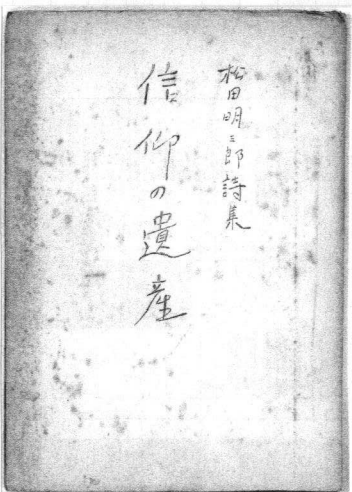 松田明三郎詩集
信仰の遺産